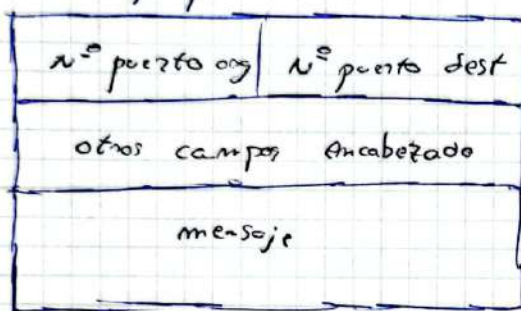 Nº puerto org Nº puerto dest
otros campos Encabezado
mensaje